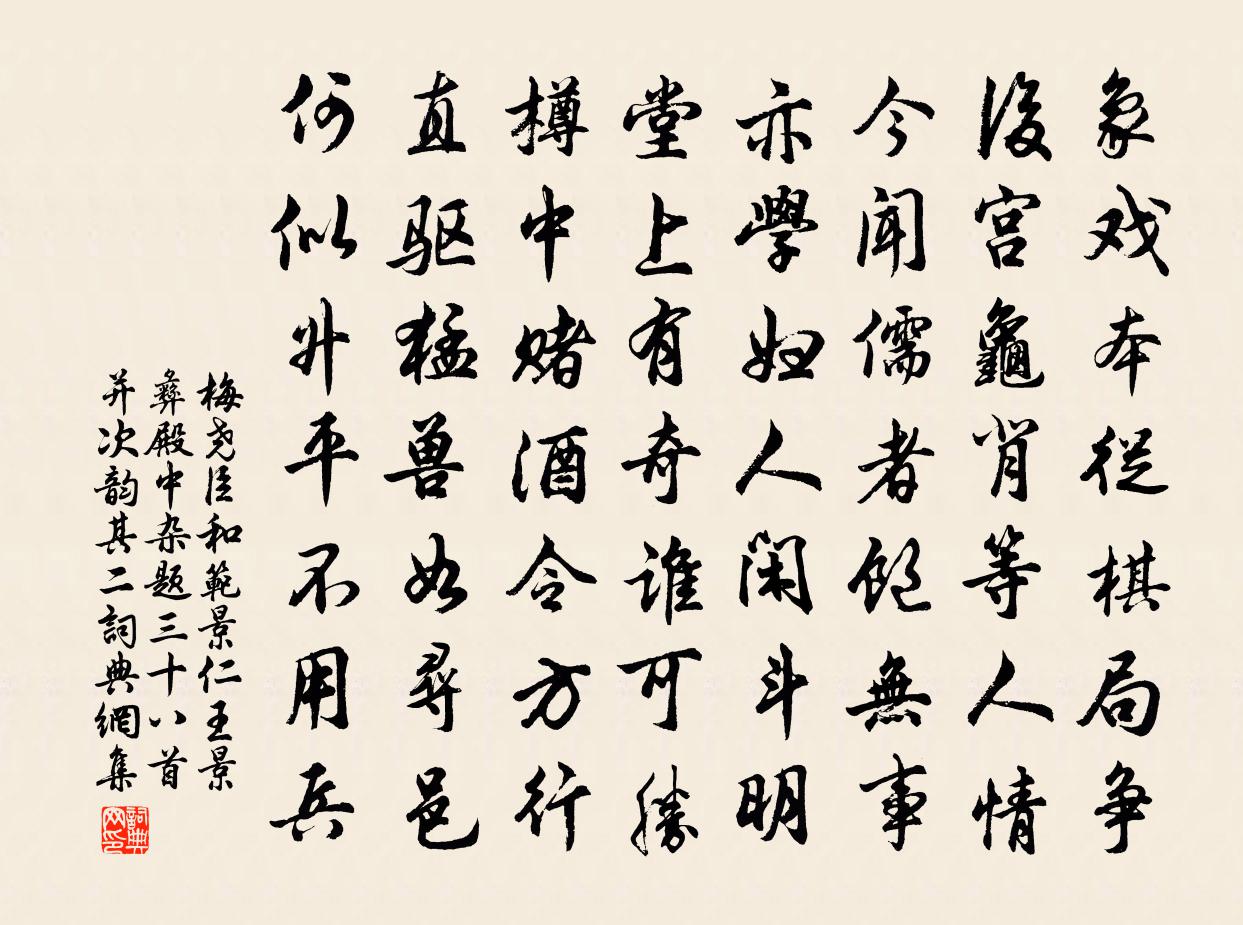 象戏本從棋局争
後宫龜背等人情
今闻儒者饱無事
亦學妇人闲斗明
堂上有奇谁可勝
樽中赌酒令方行
直驱猛兽如尋邑
何似升平不用兵
梅尧臣和範景仁王景
彝殿中杂题三十八首
并次韵其二詞典網集
詞典
网印